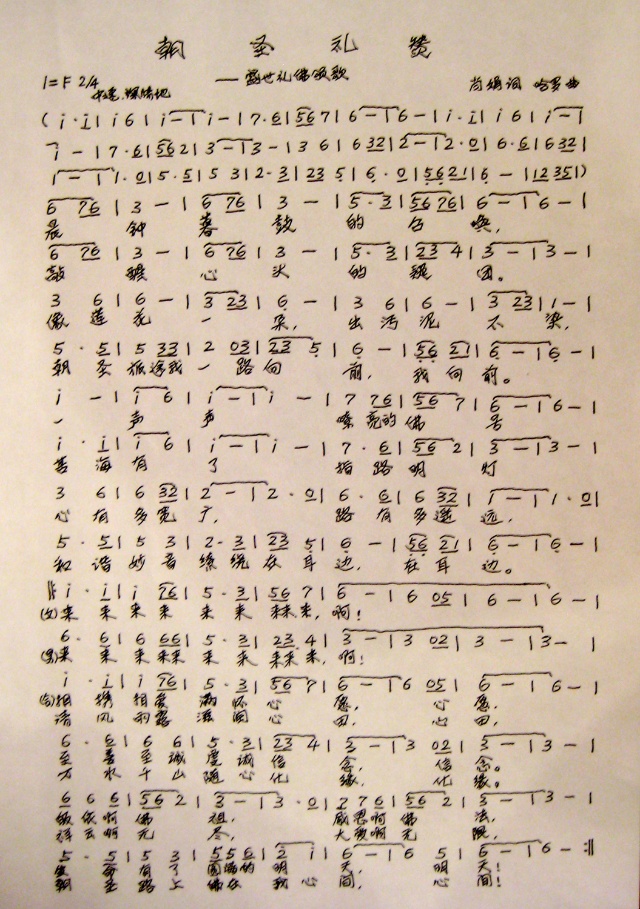 朝圣礼赞
——盛世礼佛颂歌
1=F 2/4
中速、深情地
肖娟词 哈多曲
( i · i | i 6 | i - | i - | 7 · 6 | 56 7 | 6 - | 6 - | i · i | i 6 | i - |
i - | 7 · 6 | 56 2 | 3 - | 3 - | 3 6 | 6 32 | 2 - | 2 · 0 | 6 · 6 | 6 32 |
1 - | 1 · 0 | 5 · 5 | 5 3 | 2 · 3 | 23 5 | 6 · 0 | 56 21 | 6 - | 12 35 )
6 76 | 3 - | 6 76 | 3 - | 5 · 3 | 56 76 | 6 - | 6 - |
晨钟暮鼓的召唤,
6 76 | 3 - | 6 76 | 3 - | 5 · 3 | 23 4 | 3 - | 3 - |
敲醒心头的疑团。
3 6 | 6 - | 3 23 | 6 - | 3 6 | 6 - | 3 23 | 1 - |
像莲花一朵,出污泥不染,
5 · 5 | 5 33 | 2 03 | 23 5 | 6 - | 56 21 | 6 - | 6 - |
朝圣旅途我一路向前,我向前。
i - | i 6 | i - | i - | 7 76 | 56 7 | 6 - | 6 - |
一声声嘹亮的佛号
i · i | i 6 | i - | i - | 7 · 6 | 56 2 | 3 - | 3 - |
苦海有了指路明灯
3 6 | 6 32 | 2 - | 2 · 0 | 6 · 6 | 6 32 | 1 - | 1 · 0 |
心有多宽广,路有多遥远,
5 · 5 | 5 3 | 2 · 3 | 23 5 | 6 - | 56 21 | 6 - | 6 - |
和谐妙音缭绕在耳边,在耳边。
‖: i · i | i 76 | 5 · 3 | 56 7 | 6 - | 6 05 | 6 - | 6 - |
(女)来来来来来来来来来来,啊!
6 · 6 | 6 66 | 5 · 3 | 23 4 | 3 - | 3 02 | 3 - | 3 - |
(男)来来来来来来来来来来,啊!
i · i | i 76 | 5 · 3 | 56 7 | 6 - | 6 05 | 6 - | 6 - |
(合)相携相爱满怀心愿,心愿。
清风雨露滋润心田,心田,
6 · 6 | 6 6 | 5 · 3 | 23 4 | 3 - | 3 02 | 3 - | 3 - |
至善至诚虔诚信念,信念。
万水千山随心化缘,化缘。
6 6 6 | 56 2 | 3 - | 3 · 0 | 2 7 6 | 56 2 | 3 - | 3 - |
皈依啊佛祖,感恩啊佛法,
祥云啊无尽,大爱啊无限,
5 · 5 | 5 3 | 55 6 | 2 i | 6 - | 6 5 | 6 - | 6 - :‖
生命有了圆满的明天,明天!
朝圣路上佛在我心间,心间!